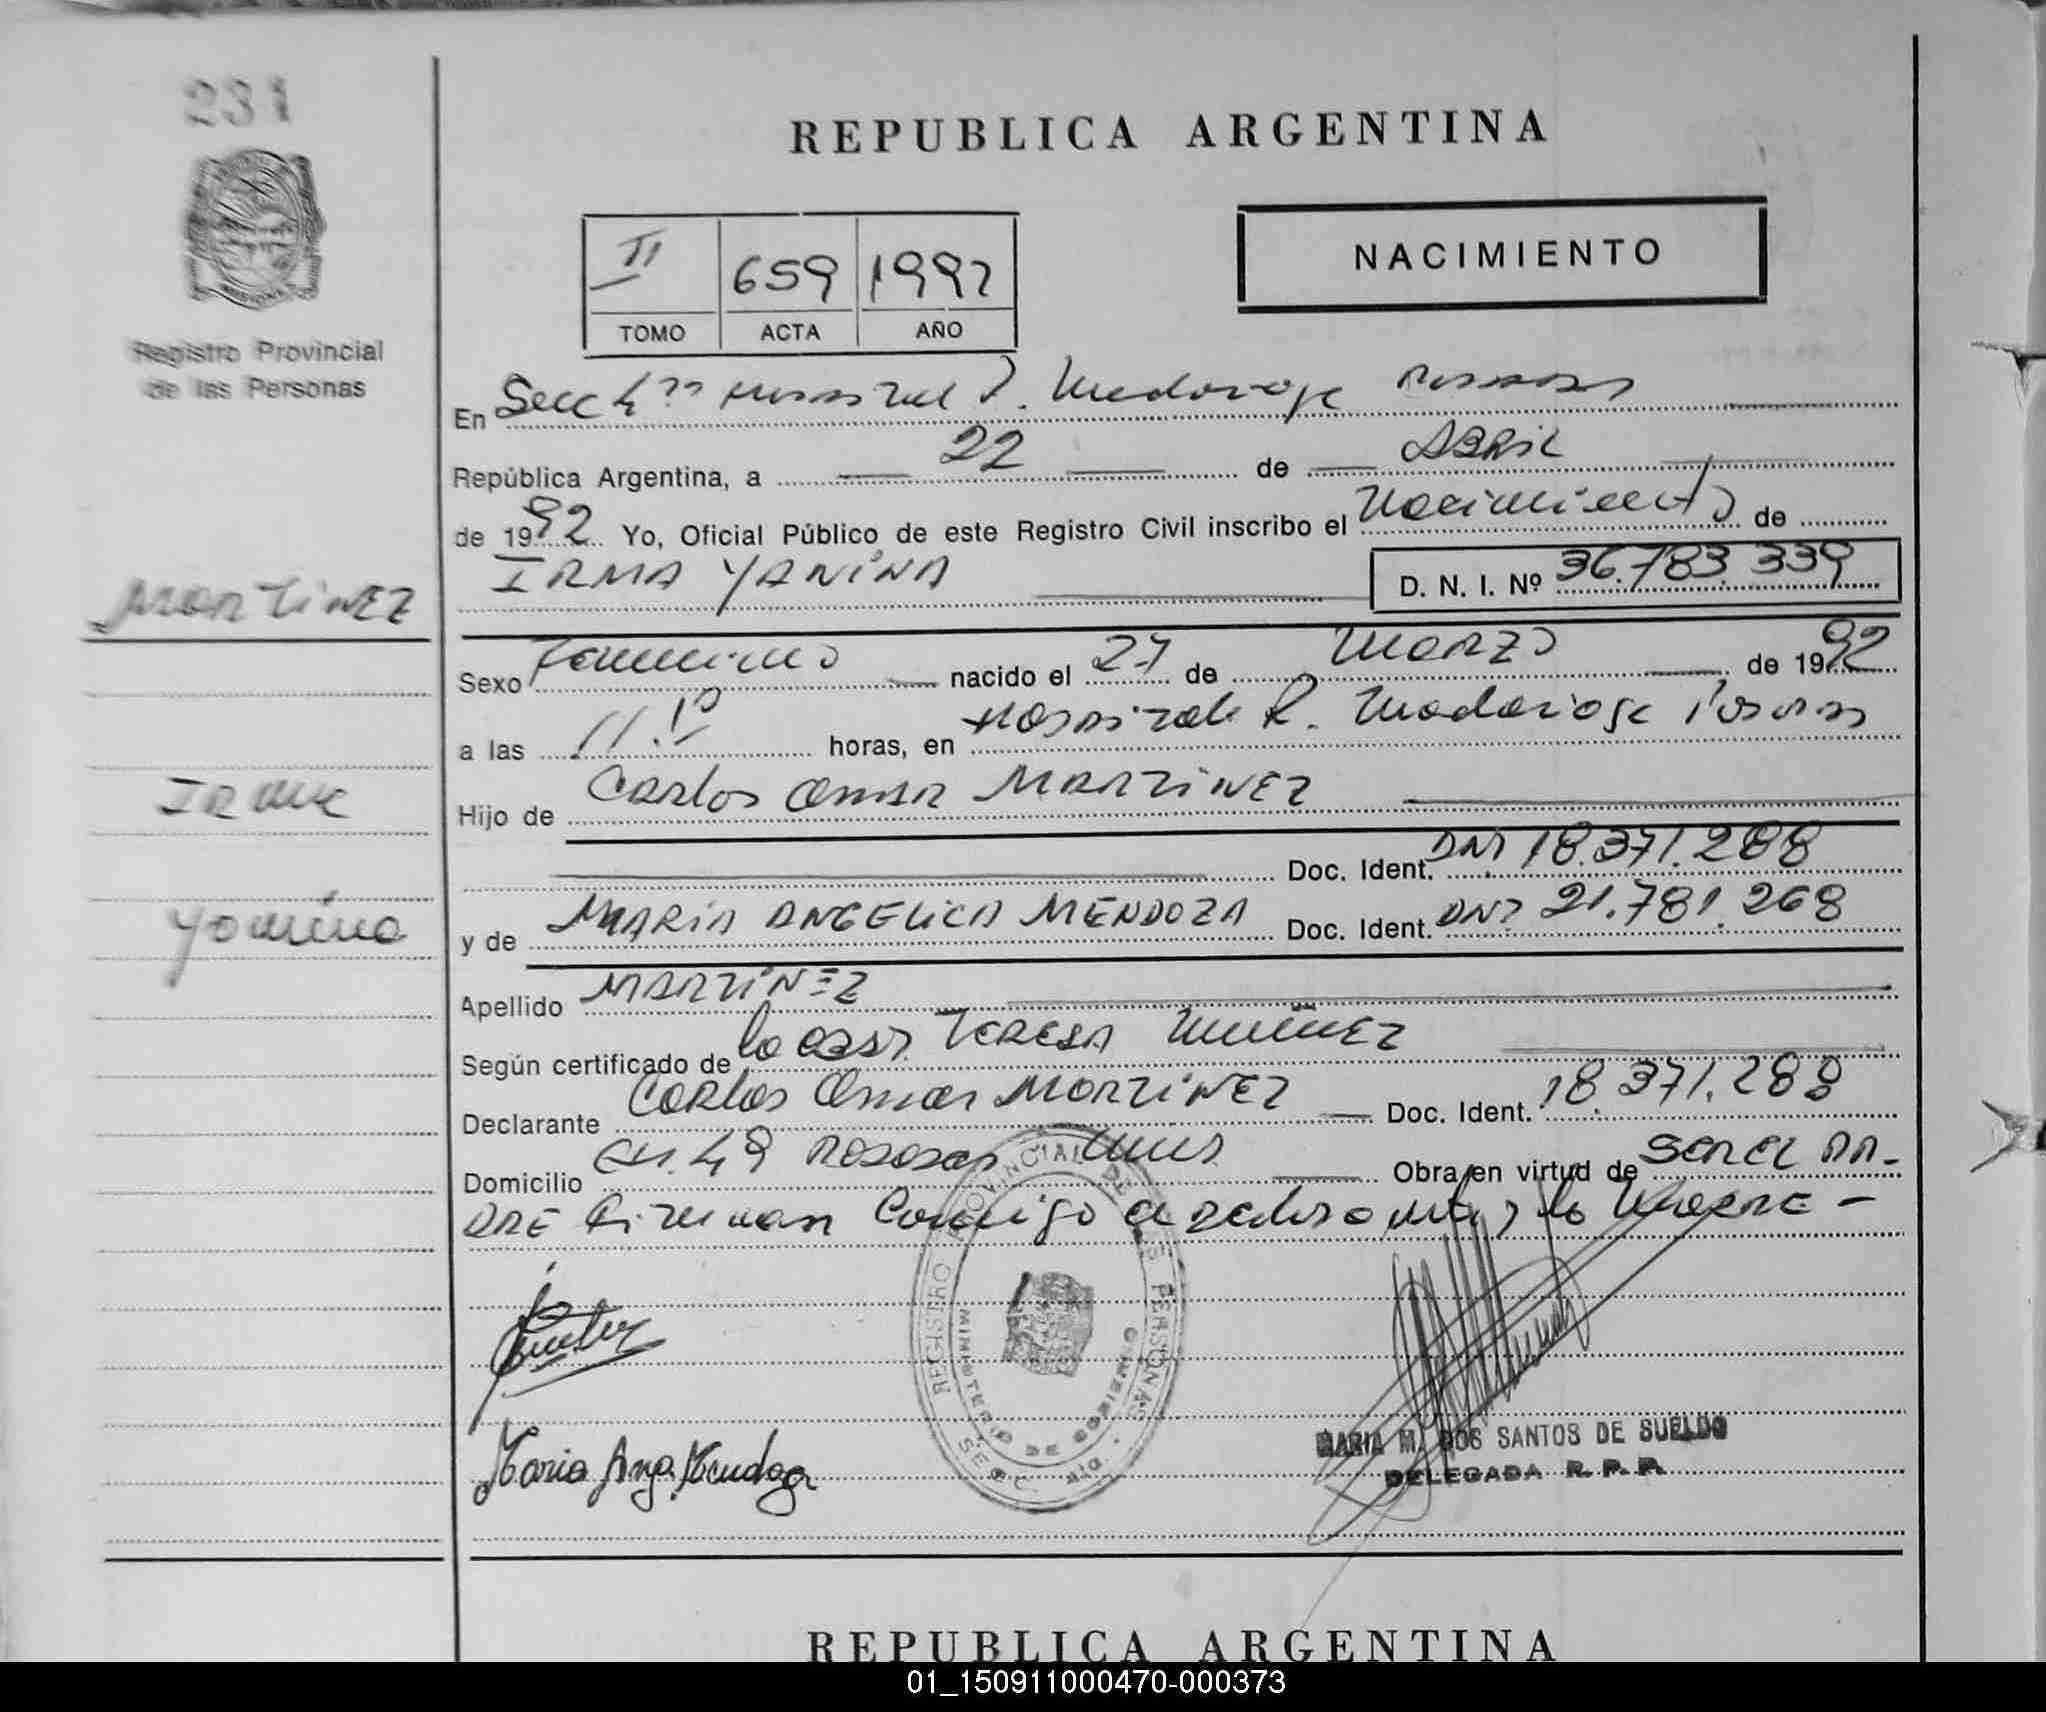 231
REPUBLICA ARGENTINA
Registro Provincial
de las Personas
II 659 1992
TOMO ACTA AÑO
NACIMIENTO
En Secc 4ta Hospital R. Madariaga Posadas
República Argentina, a 22 de ABRIL
de 1992 Yo, Oficial Público de este Registro Civil inscribo el Nacimiento de
IRMA YANINA D. N. I. Nº 36.783.339
MARTINEZ
Irma
Yanina
Sexo Femenino nacido el 27 de MARZO de 1992
a las horas, en Hospital R. Madariaga Posadas
Hijo de Carlos Omar MARTINEZ
Doc. Ident. DNI 18.371.288
y de MARIA ANGELICA MENDOZA Doc. Ident. DNI 21.781.268
Apellido MARTINEZ
Según certificado de la TERESA
Declarante Carlos Omar MARTINEZ Doc. Ident. 18.371.288
Domicilio CH. 49 Posadas Mnes Obra en virtud de SER EL PA-
DRE Firman Conmigo el declarante y la Madre -
Maria Ang. Mendoza
REGISTRO PROVINCIAL DE LAS PERSONAS
MINISTERIO DE GOBIERNO
SECC. 4ta
MARIA M. DOS SANTOS DE SUELDO
DELEGADA R. P. P.
REPUBLICA ARGENTINA
01_150911000470-000373